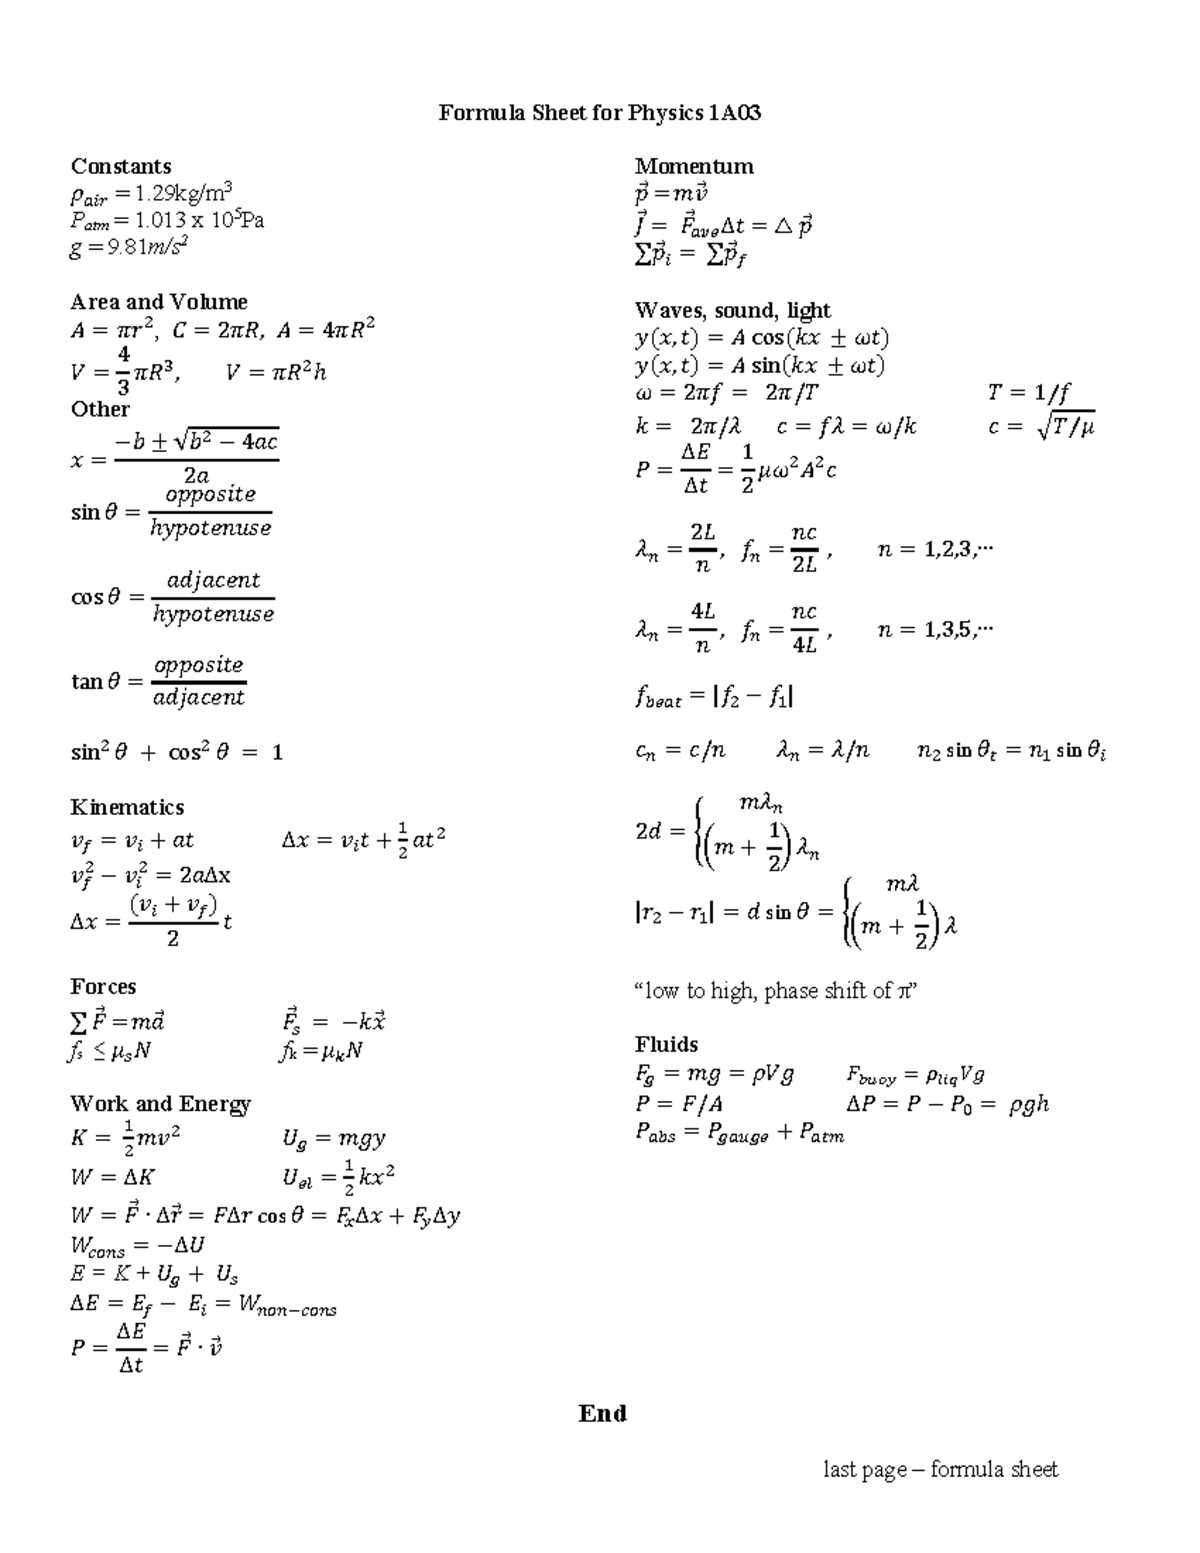 Formula Sheet for Physics 1A03
Constants
ρair = 1.29kg/m³
Patm = 1.013 x 10⁵Pa
g = 9.81m/s²
Area and Volume
A = πr², C = 2πR, A = 4πR²
V = 4/3 πR³, V = πR²h
Other
x = (−b ± √(b² − 4ac)) / 2a
sin θ = opposite / hypotenuse
cos θ = adjacent / hypotenuse
tan θ = opposite / adjacent
sin² θ + cos² θ = 1
Kinematics
v_f = v_i + at Δx = v_i t + ½ at²
v_f² − v_i² = 2aΔx
Δx = (v_i + v_f) / 2 t
Forces
∑ F⃗ = ma⃗ F⃗_s = −kx⃗
f_s ≤ μ_s N f_k = μ_k N
Work and Energy
K = ½ mv² U_g = mgy
W = ΔK U_el = ½ kx²
W = F⃗ · Δr⃗ = FΔr cos θ = F_xΔx + F_yΔy
W_cons = −ΔU
E = K + U_g + U_s
ΔE = E_f − E_i = W_non−cons
P = ΔE/Δt = F⃗ · v⃗
Momentum
p⃗ = mv⃗
J⃗ = F⃗_ave Δt = △ p⃗
∑p⃗_i = ∑p⃗_f
Waves, sound, light
y(x, t) = A cos(kx ± ωt)
y(x, t) = A sin(kx ± ωt)
ω = 2πf = 2π/T T = 1/f
k = 2π/λ c = fλ = ω/k c = √(T/μ)
P = ΔE/Δt = 1/2 μω²A²c
λ_n = 2L/n, f_n = nc/2L , n = 1,2,3,⋯
λ_n = 4L/n, f_n = nc/4L , n = 1,3,5,⋯
f_beat = |f₂ − f₁|
c_n = c/n λ_n = λ/n n₂ sin θ_t = n₁ sin θ_i
2d = { mλ_n
(m + 1/2) λ_n
|r₂ − r₁| = d sin θ = { mλ
(m + 1/2) λ
“low to high, phase shift of π”
Fluids
F_g = mg = ρVg F_buoy = ρ_liq Vg
P = F/A ΔP = P − P₀ = ρgh
P_abs = P_gauge + P_atm
End
last page – formula sheet